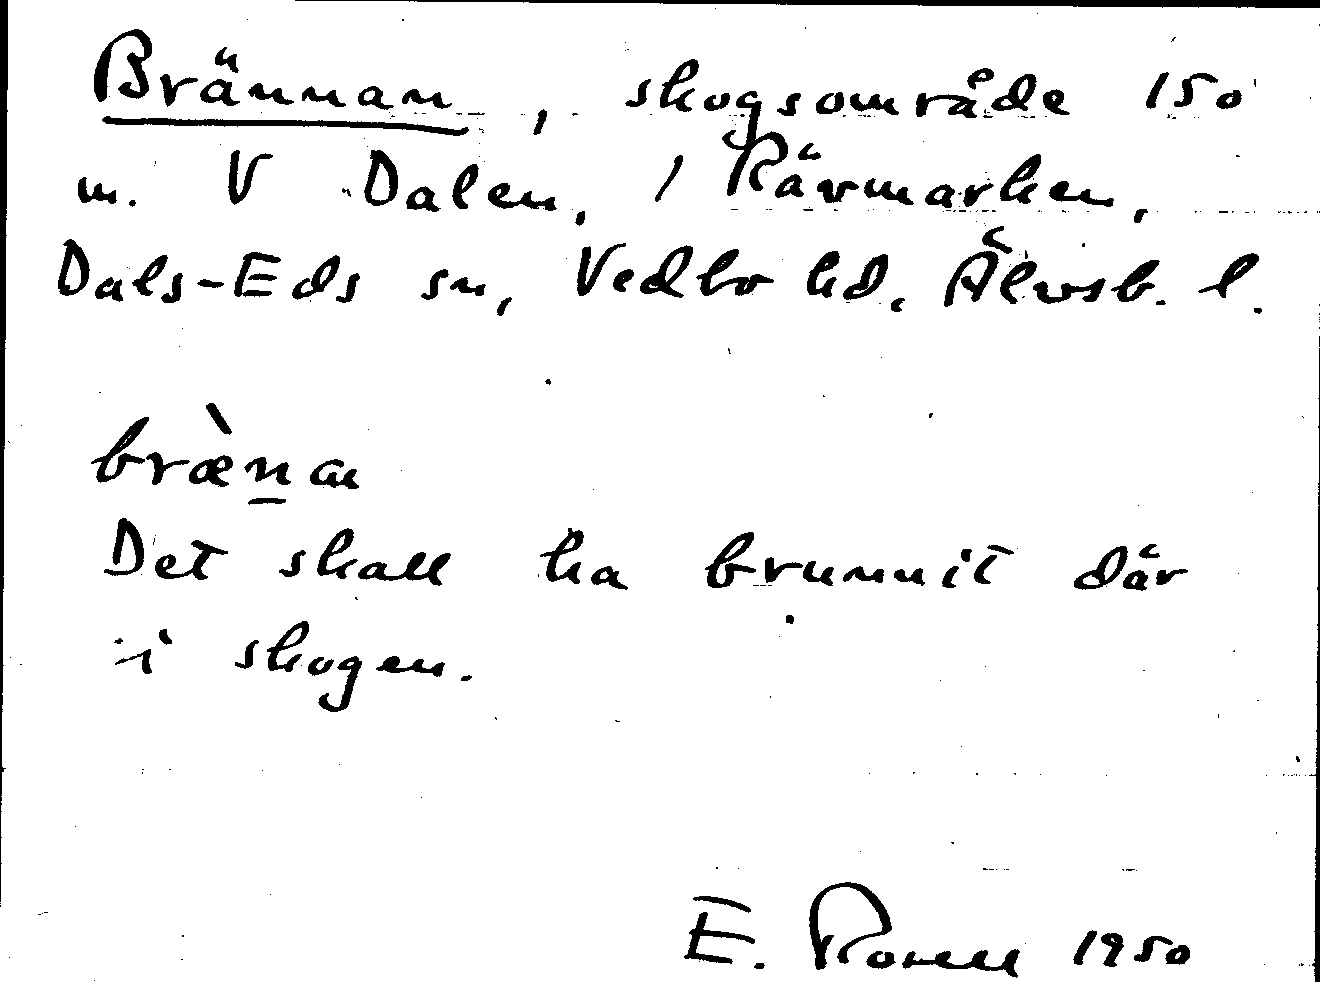 Brännan, skogsområde 150
m. V Dalen, 1 Rävmarken,
Dals-Eds sn, Vedbo hd. Älvsb. l.
bræ̀n̲an
Det skall ha brunnit där
i skogen.
E. Rosell 1950